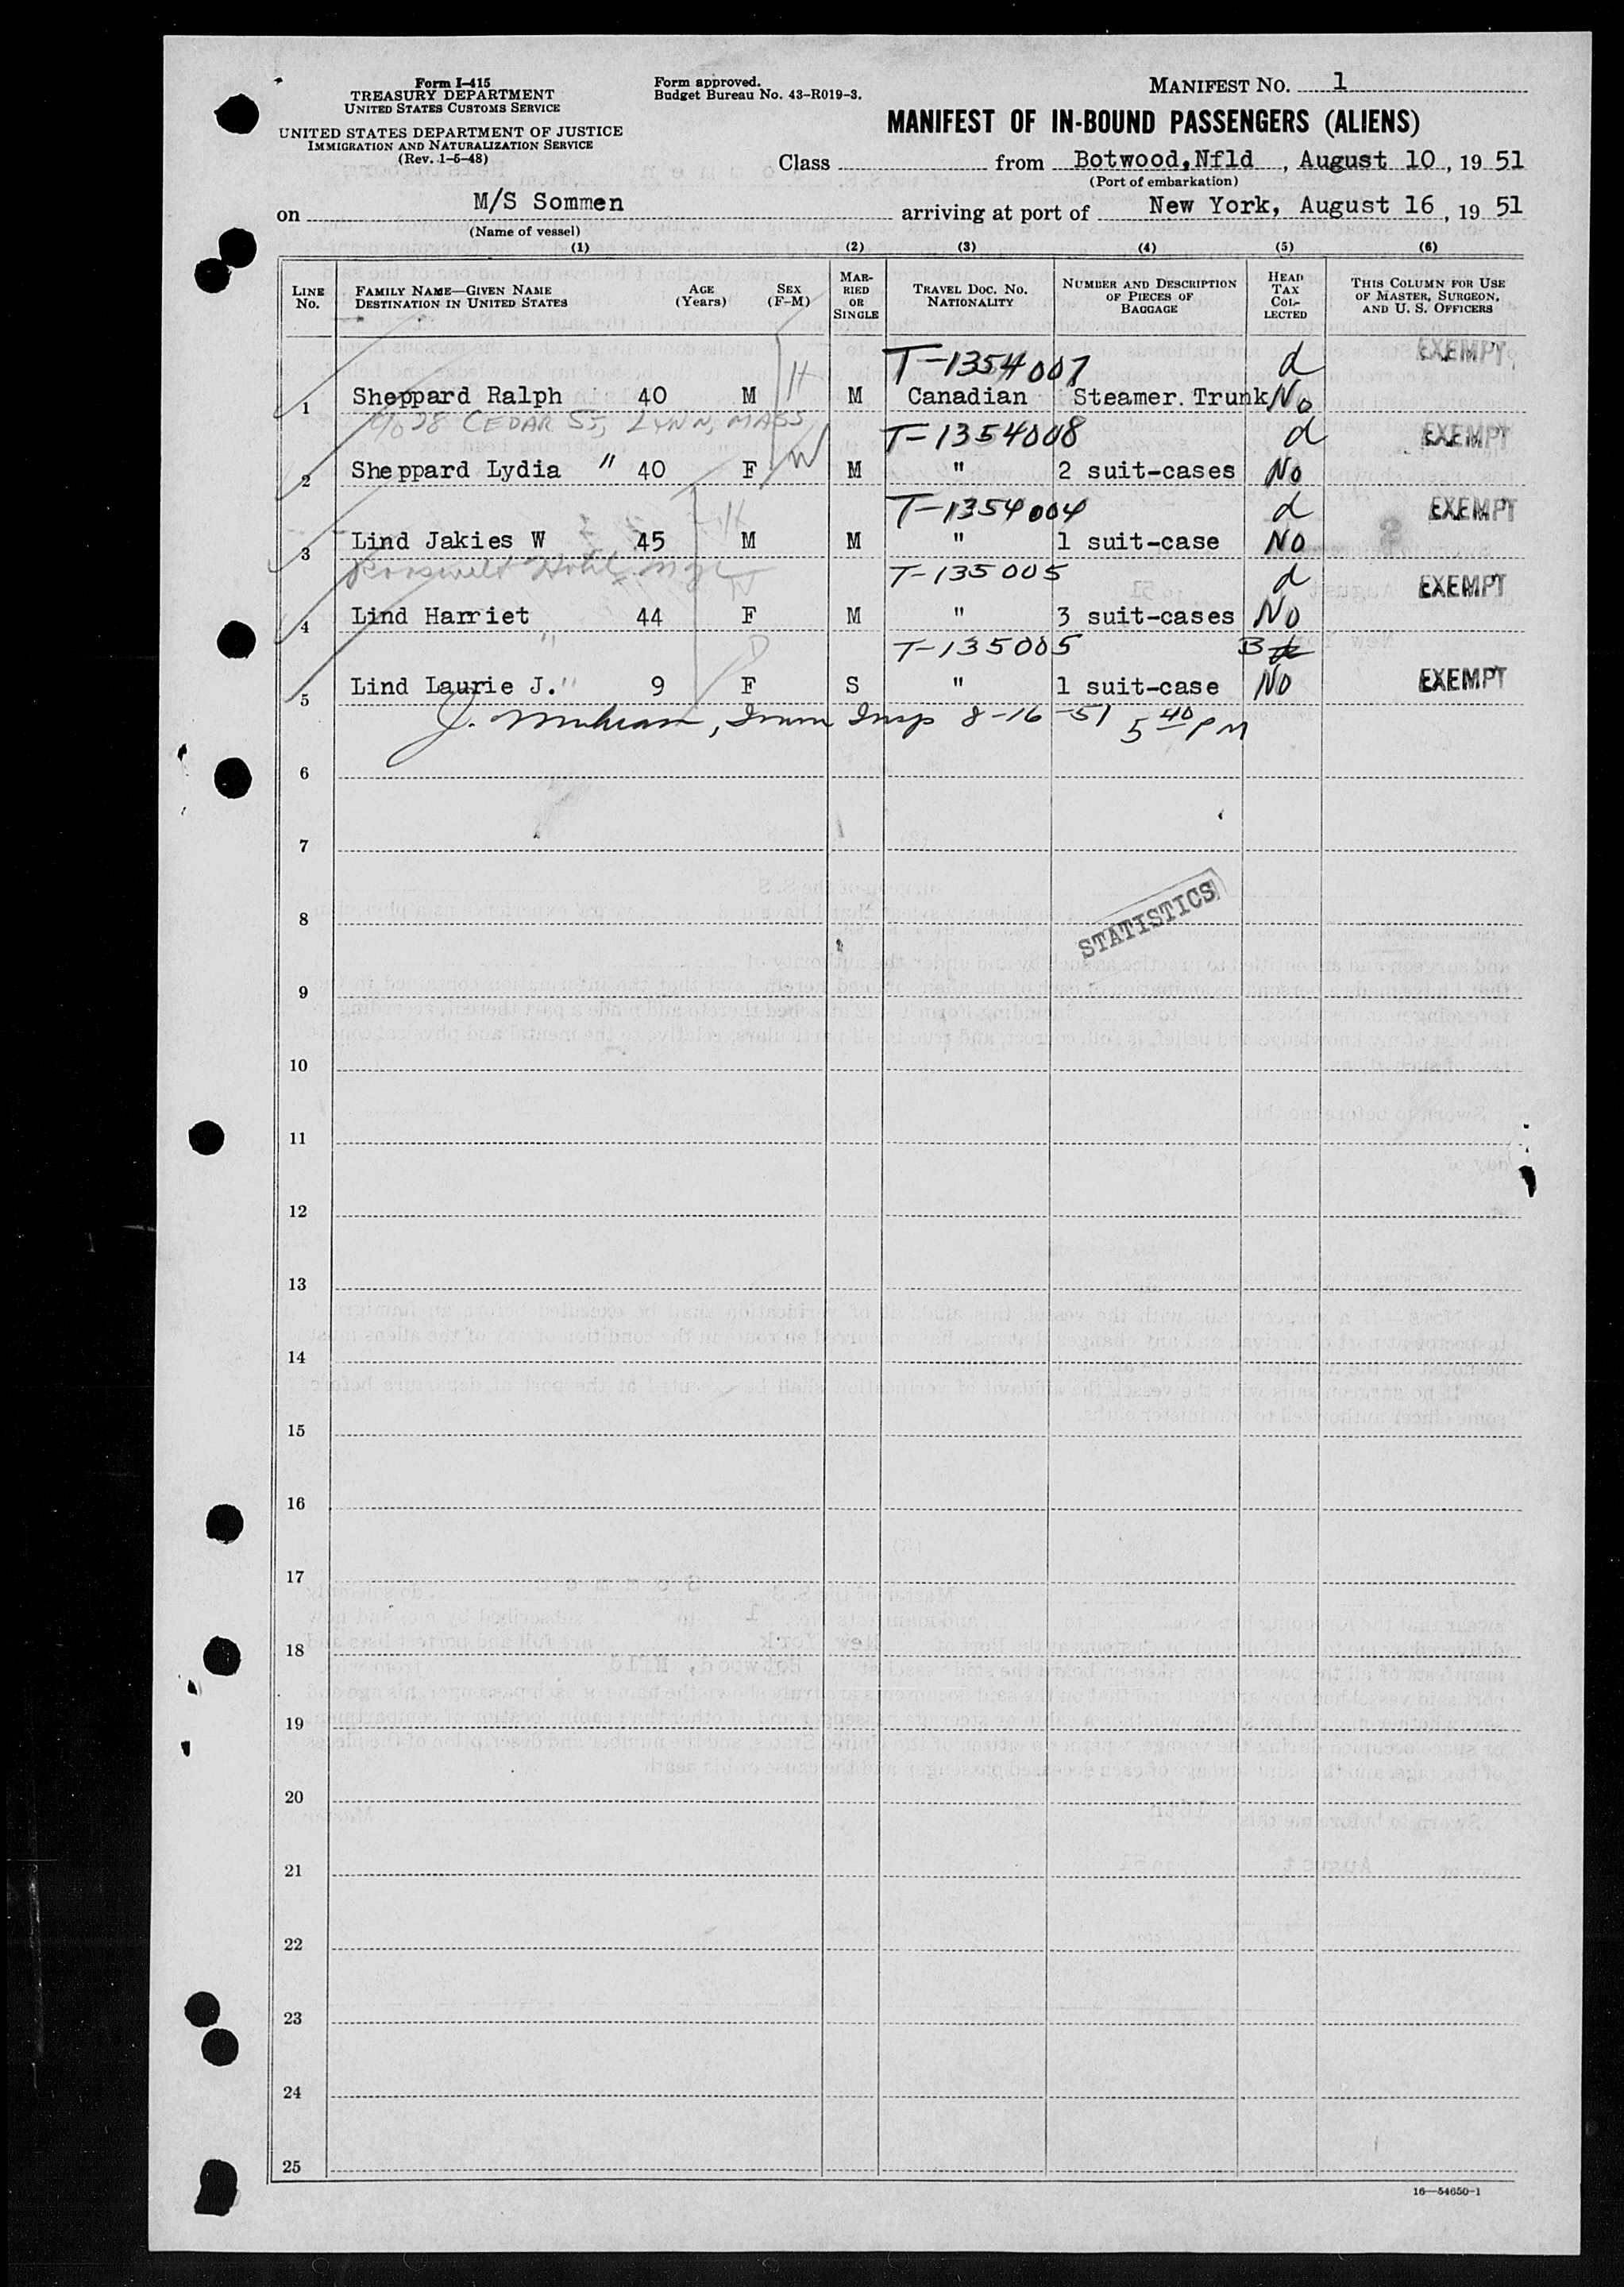 Form I-415
TREASURY DEPARTMENT
UNITED STATES CUSTOMS SERVICE
UNITED STATES DEPARTMENT OF JUSTICE
IMMIGRATION AND NATURALIZATION SERVICE
(Rev. 1-5-48)
Form approved.
Budget Bureau No. 43-R019-3.
MANIFEST NO. 1
MANIFEST OF IN-BOUND PASSENGERS (ALIENS)
Class from Botwood, Nfld, August 10, 19 51
(Port of embarkation)
on M/S Sommen arriving at port of New York, August 16, 19 51
(Name of vessel)
(1) (2) (3) (4) (5) (6)
LINE No. FAMILY NAME—GIVEN NAME DESTINATION IN UNITED STATES AGE (Years) SEX (F-M) MARRIED OR SINGLE TRAVEL DOC. NO. NATIONALITY NUMBER AND DESCRIPTION OF PIECES OF BAGGAGE HEAD TAX COLLECTED THIS COLUMN FOR USE OF MASTER, SURGEON, AND U. S. OFFICERS
T-1354007 d EXEMPT
1 Sheppard Ralph 40 M H M Canadian Steamer. Trunk No
c/o 28 CEDAR ST, LYNN, MASS T-1354008 d EXEMPT
2 Sheppard Lydia " 40 F W M " 2 suit-cases No
T-1354004 d EXEMPT
3 Lind Jakies W 45 M H M " 1 suit-case No
Roosevelt Hotel nyc W T-135005 d EXEMPT
4 Lind Harriet 44 F M " 3 suit-cases No
" D T-135005 B
5 Lind Laurie J. " 9 F S " 1 suit-case No EXEMPT
Imm Insp 8-16-51 5 40 PM
6
7
8
STATISTICS
9
10
11
12
13
14
15
16
17
18
19
20
21
22
23
24
25
16—54650-1